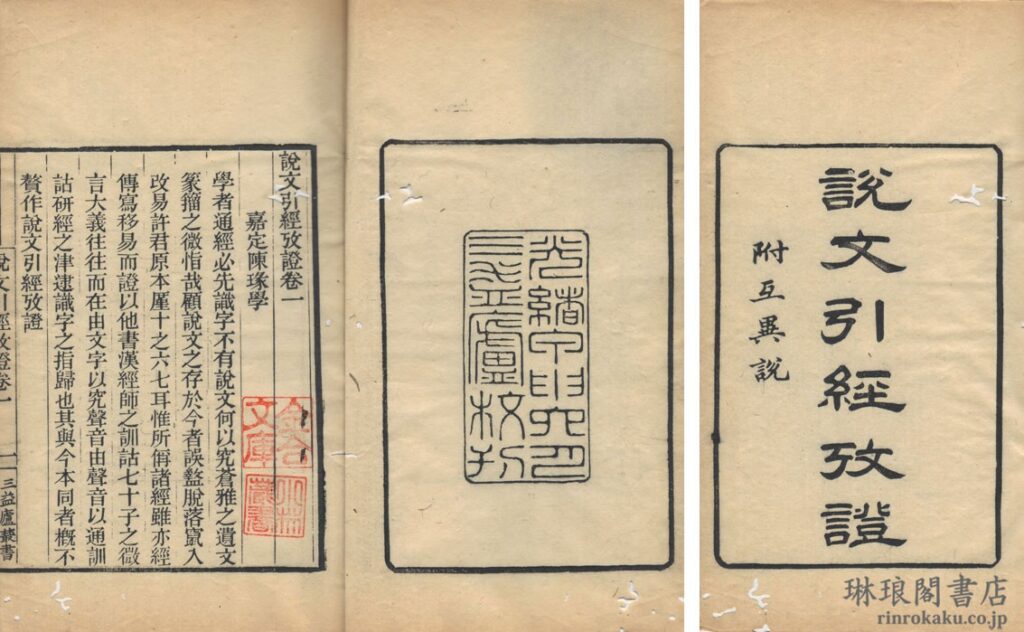 說文引經攷證
附互異說
光緒甲申六月
三益廬校刊
說文引經攷證卷一
嘉定陳瑑學
學者通經必先識字不有說文何以究蒼雅之遺文
篆籀之微恉哉顧說文之存於今者誤盭脫落竄入
改易許君原本厪十之六七耳惟所偁諸經雖亦經
傳寫移易而證以他書漢經師之訓詁七十子之微
言大義往往而在由文字以究聲音由聲音以通訓
詁研經之津逮識字之指歸也其與今本同者概不
贅作說文引經攷證
說文引經攷證卷一
一
三益廬藏書
金谷
文庫
琳琅閣書店
rinrokaku.co.jp